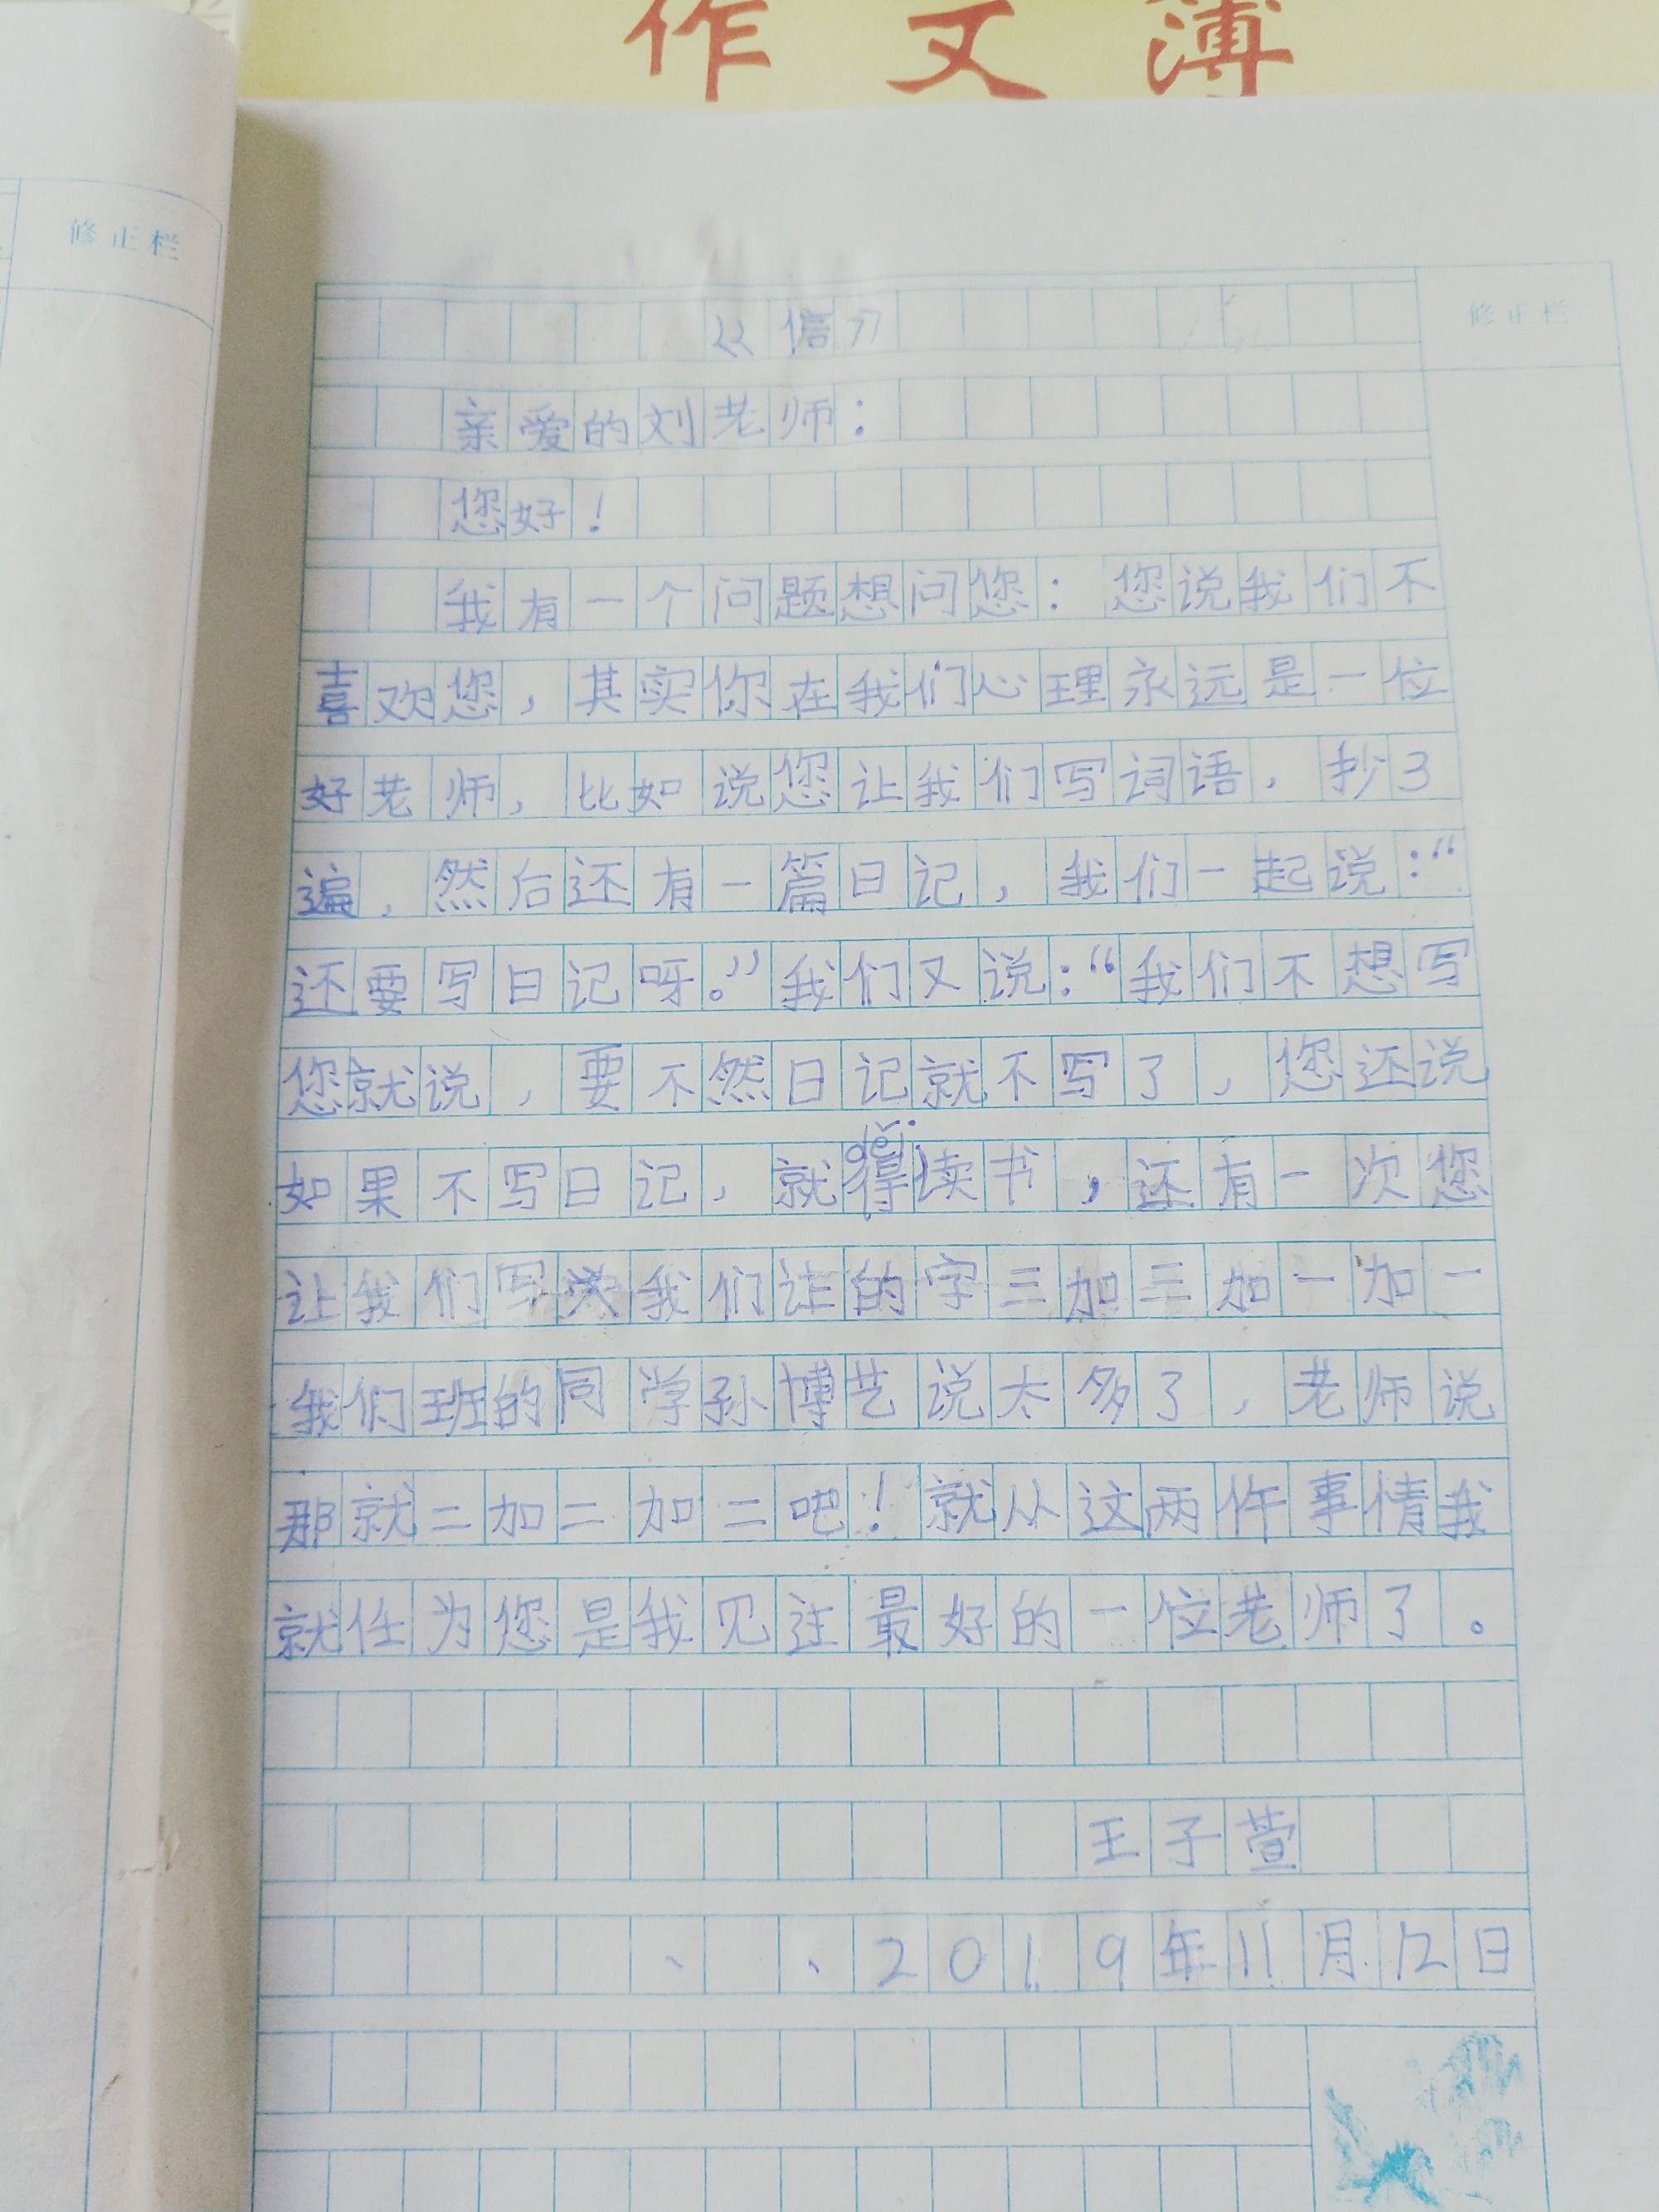 作文簿
修正栏
修正栏
《信》
亲爱的刘老师：
您好！
我有一个问题想问您：您说我们不
喜欢您，其实你在我们心理永远是一位
好老师，比如说您让我们写词语，抄3
遍，然后还有一篇日记，我们一起说：“
还要写日记呀。”我们又说：“我们不想写
您就说，要不然日记就不写了，您还说
děi
如果不写日记，就得读书，还有一次您
让我们写我们的字三加三加一加一
我们班的同学孙博艺说太多了，老师说
那就二加二加二吧！就从这两件事情我
就任为您是我见过最好的一位老师了。
王子萱
2019年11月12日